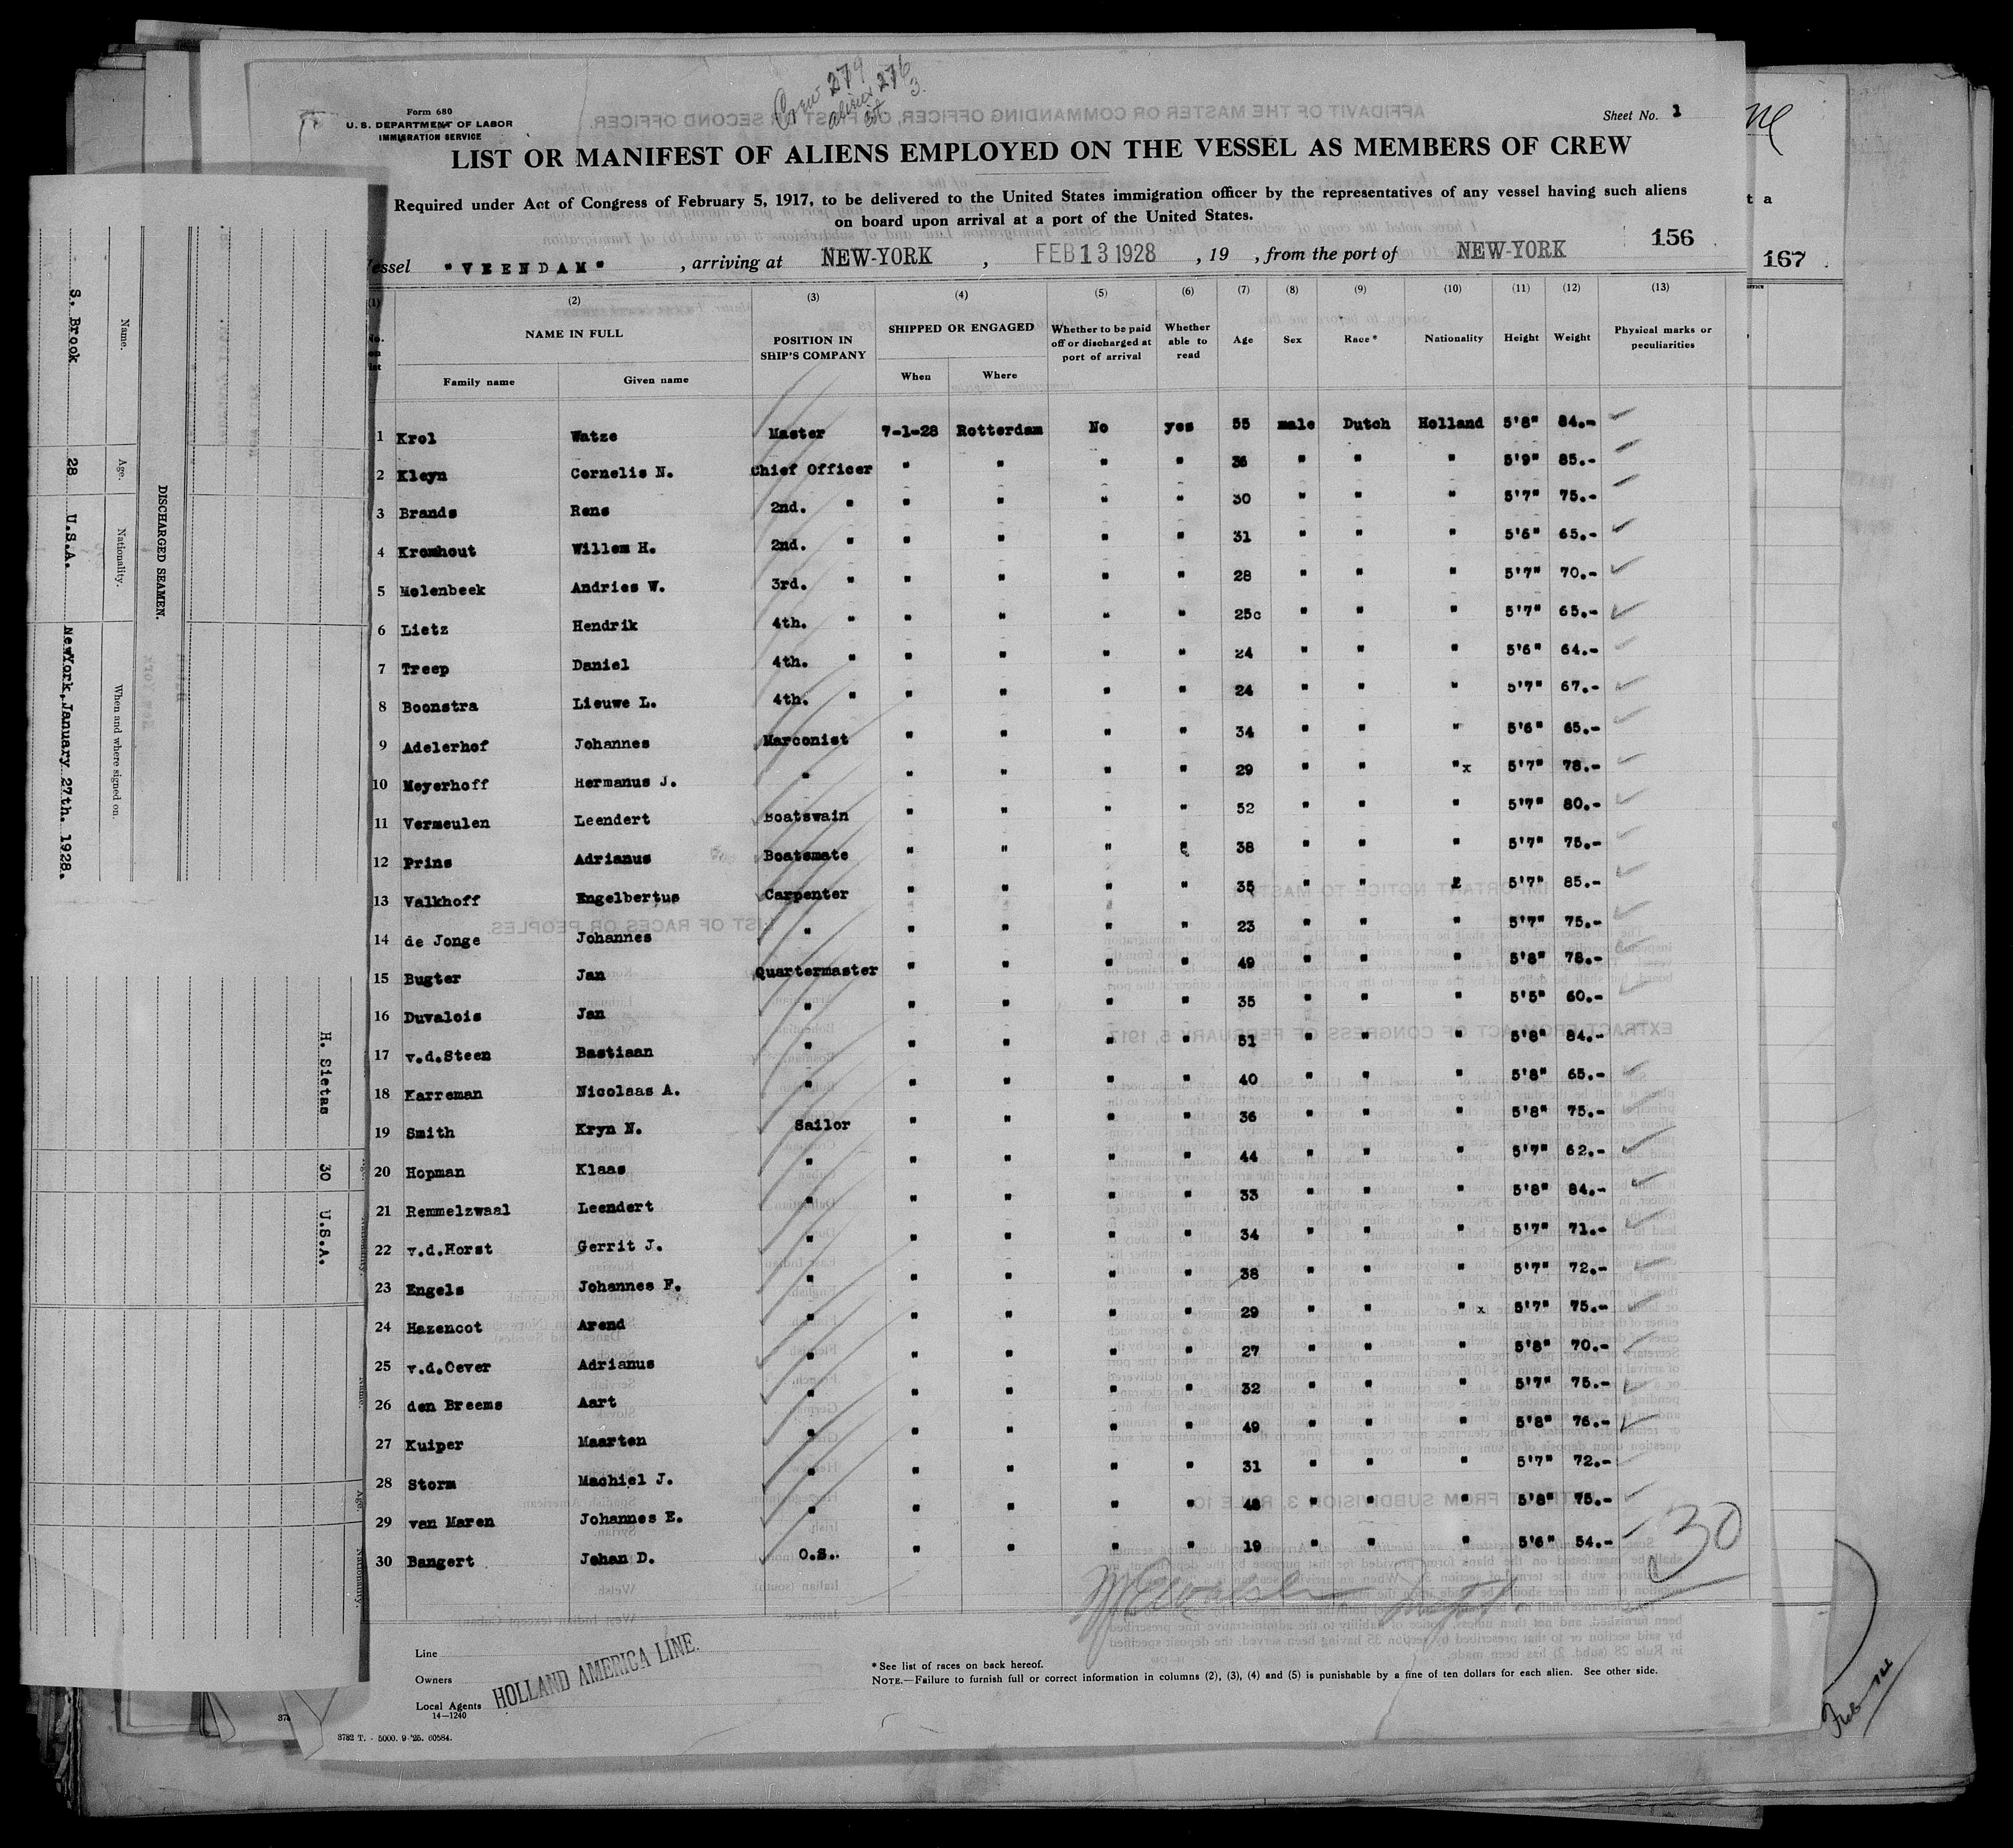 Crew 279
aliens 276
3
Form 680
U. S. DEPARTMENT OF LABOR
IMMIGRATION SERVICE
Sheet No. 1
LIST OR MANIFEST OF ALIENS EMPLOYED ON THE VESSEL AS MEMBERS OF CREW
Required under Act of Congress of February 5, 1917, to be delivered to the United States immigration officer by the representatives of any vessel having such aliens
on board upon arrival at a port of the United States.
156
Vessel "VEENDAM", arriving at NEW-YORK, FEB 13 1928, 19 , from the port of NEW-YORK
167
(1) (2) (3) (4) (5) (6) (7) (8) (9) (10) (11) (12) (13)
No. on list NAME IN FULL POSITION IN SHIP'S COMPANY SHIPPED OR ENGAGED Whether to be paid off or discharged at port of arrival Whether able to read Age Sex Race* Nationality Height Weight Physical marks or peculiarities
Family name Given name When Where
1 Krol Watze Master 7-1-28 Rotterdam No yes 55 male Dutch Holland 5'8" 84.-
2 Kleyn Cornelis N. Chief Officer " " " " 36 " " " 5'9" 85.-
3 Brands Rens 2nd. " " " " " 30 " " " 5'7" 75.-
4 Kromhout Willem H. 2nd. " " " " " 31 " " " 5'6" 65.-
5 Molenbeek Andries W. 3rd. " " " " " 28 " " " 5'7" 70.-
6 Lietz Hendrik 4th. " " " " " 25c " " " 5'7" 65.-
7 Treep Daniel 4th. " " " " " 24 " " " 5'6" 64.-
8 Boonstra Lieuwe L. 4th. " " " " " 24 " " " 5'7" 67.-
9 Adelerhof Johannes Marconist " " " " 34 " " " 5'6" 65.-
10 Meyerhoff Hermanus J. " " " " " 29 " " "x 5'7" 78.-
11 Vermeulen Leendert Boatswain " " " " 52 " " " 5'7" 80.-
12 Prins Adrianus Boatsmate " " " " 38 " " " 5'7" 75.-
13 Valkhoff Engelbertus Carpenter " " " " 35 " " " 5'7" 85.-
14 de Jonge Johannes " " " " " 23 " " " 5'7" 75.-
15 Bugter Jan Quartermaster " " " " 49 " " " 5'8" 78.-
16 Duvalois Jan " " " " " 35 " " " 5'5" 60.-
17 v.d.Steen Bastiaan " " " " " 51 " " " 5'8" 84.-
18 Karreman Nicolaas A. " " " " " 40 " " " 5'8" 65.-
19 Smith Kryn N. Sailor " " " " 36 " " " 5'8" 75.-
20 Hopman Klaas " " " " " 44 " " " 5'7" 62.-
21 Remmelzwaal Leendert " " " " " 33 " " " 5'8" 84.-
22 v.d.Horst Gerrit J. " " " " " 34 " " " 5'7" 71.-
23 Engels Johannes F. " " " " " 38 " " " 5'7" 72.-
24 Hazencot Arend " " " " " 29 " " " x 5'7" 75.-
25 v.d.Oever Adrianus " " " " " 27 " " " 5'8" 70.-
26 den Breems Aart " " " " " 32 " " " 5'7" 75.-
27 Kuiper Maarten " " " " " 49 " " " 5'8" 76.-
28 Storm Machiel J. " " " " " 31 " " " 5'7" 72.-
29 van Maren Johannes E. " " " " " 48 " " " 5'8" 75.-
30 Bangert Johan D. O.S. " " " " 19 " " " 5'6" 54.-
30
Line
Owners HOLLAND AMERICA LINE.
Local Agents
14—1240
*See list of races on back hereof.
NOTE.—Failure to furnish full or correct information in columns (2), (3), (4) and (5) is punishable by a fine of ten dollars for each alien. See other side.
3782 T. - 5000. 9-'25. 60584.
DISCHARGED SEAMEN.
Name. Age. Nationality. When and where signed on.
S. Brook 28 U.S.A. NewYork, January 27th. 1928.
H. Sietas 30 U.S.A.